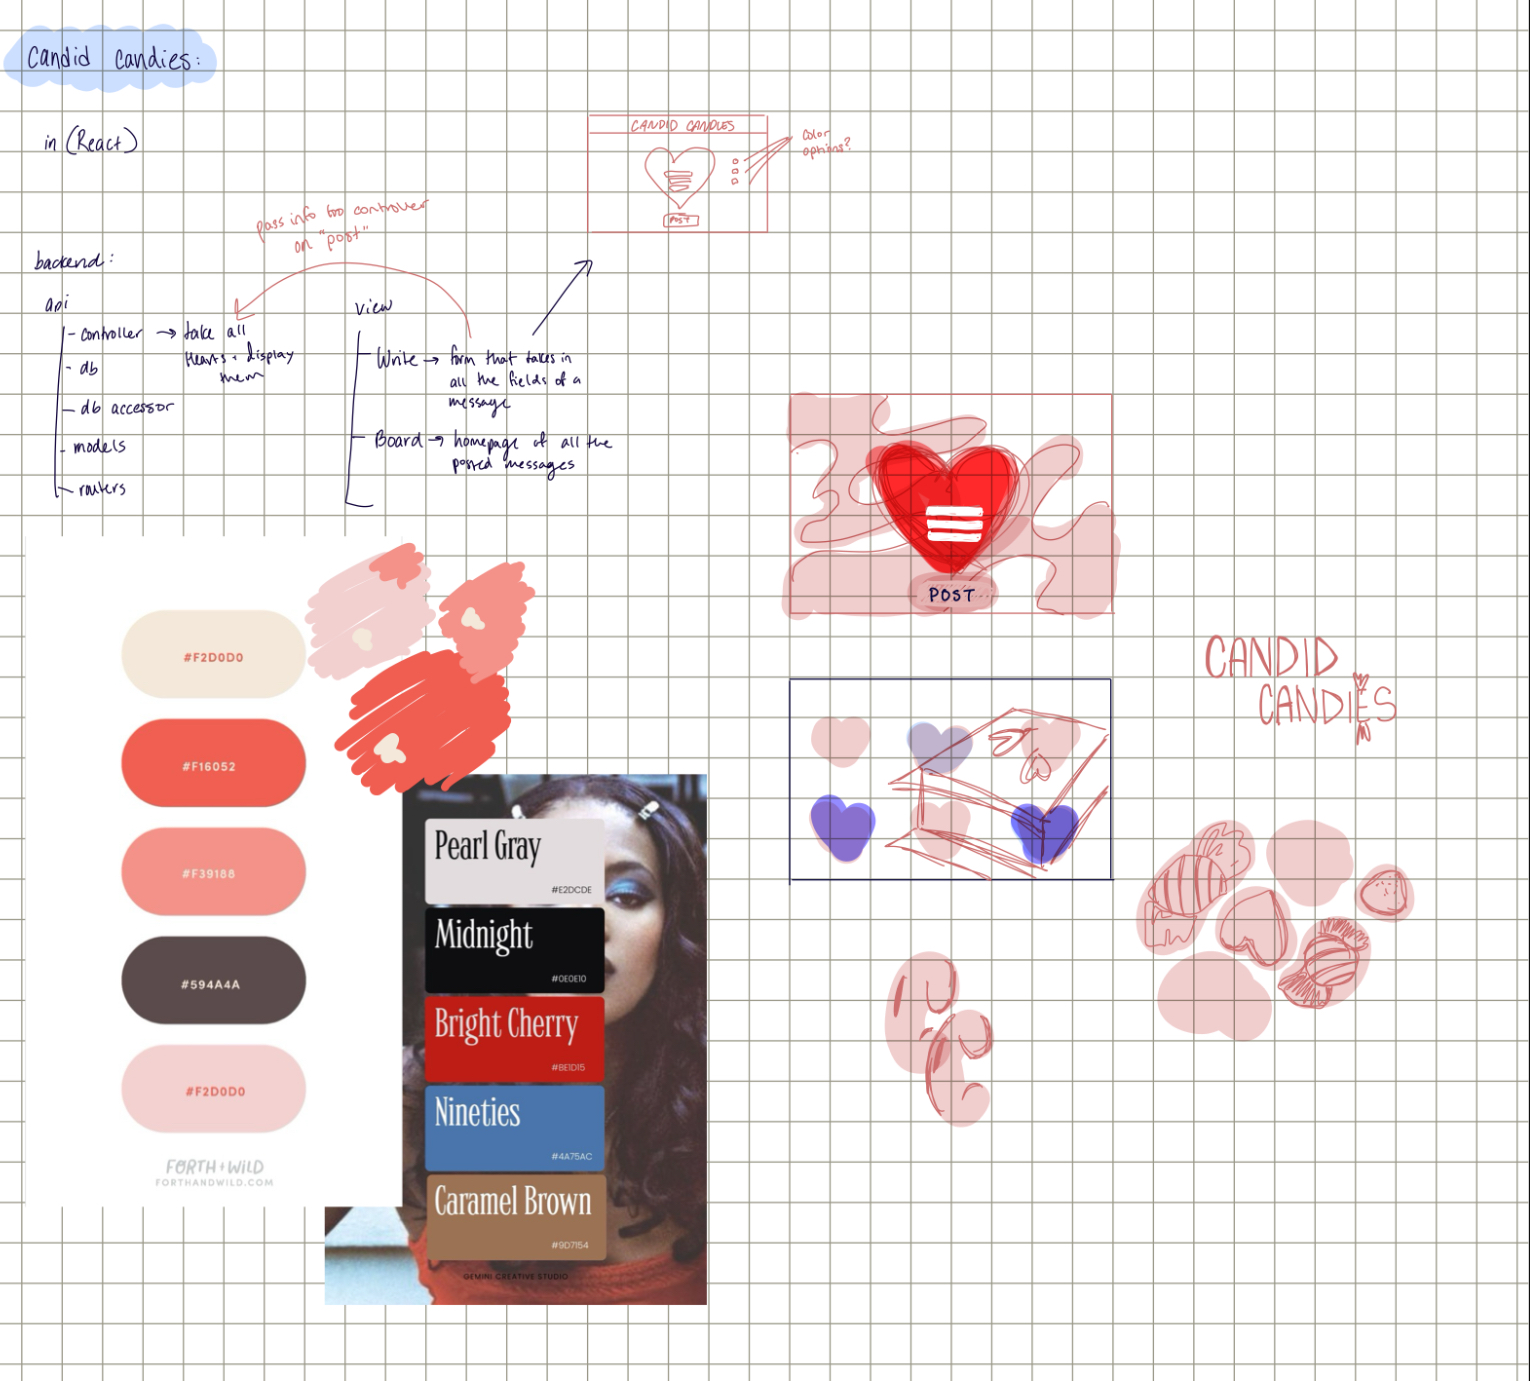 Candid Candies:
in (React)
CANDID CANDIES
POST
color
options?
pass info too controller
on "post"
backend:
api
- controller → take all
Hearts + display
them
- db
- db accessor
- models
- routers
view
Write → form that takes in
all the fields of a
message
Board → homepage of all the
posted messages
POST
CANDID
CANDIES
#F2D0D0
#F16052
#F39188
#594A4A
#F2D0D0
FORTH + WILD
FORTHANDWILD.COM
Pearl Gray
#E2DCDE
Midnight
#0E0E10
Bright Cherry
#BE1D15
Nineties
#4A75AC
Caramel Brown
#9D7154
GEMINI CREATIVE STUDIO